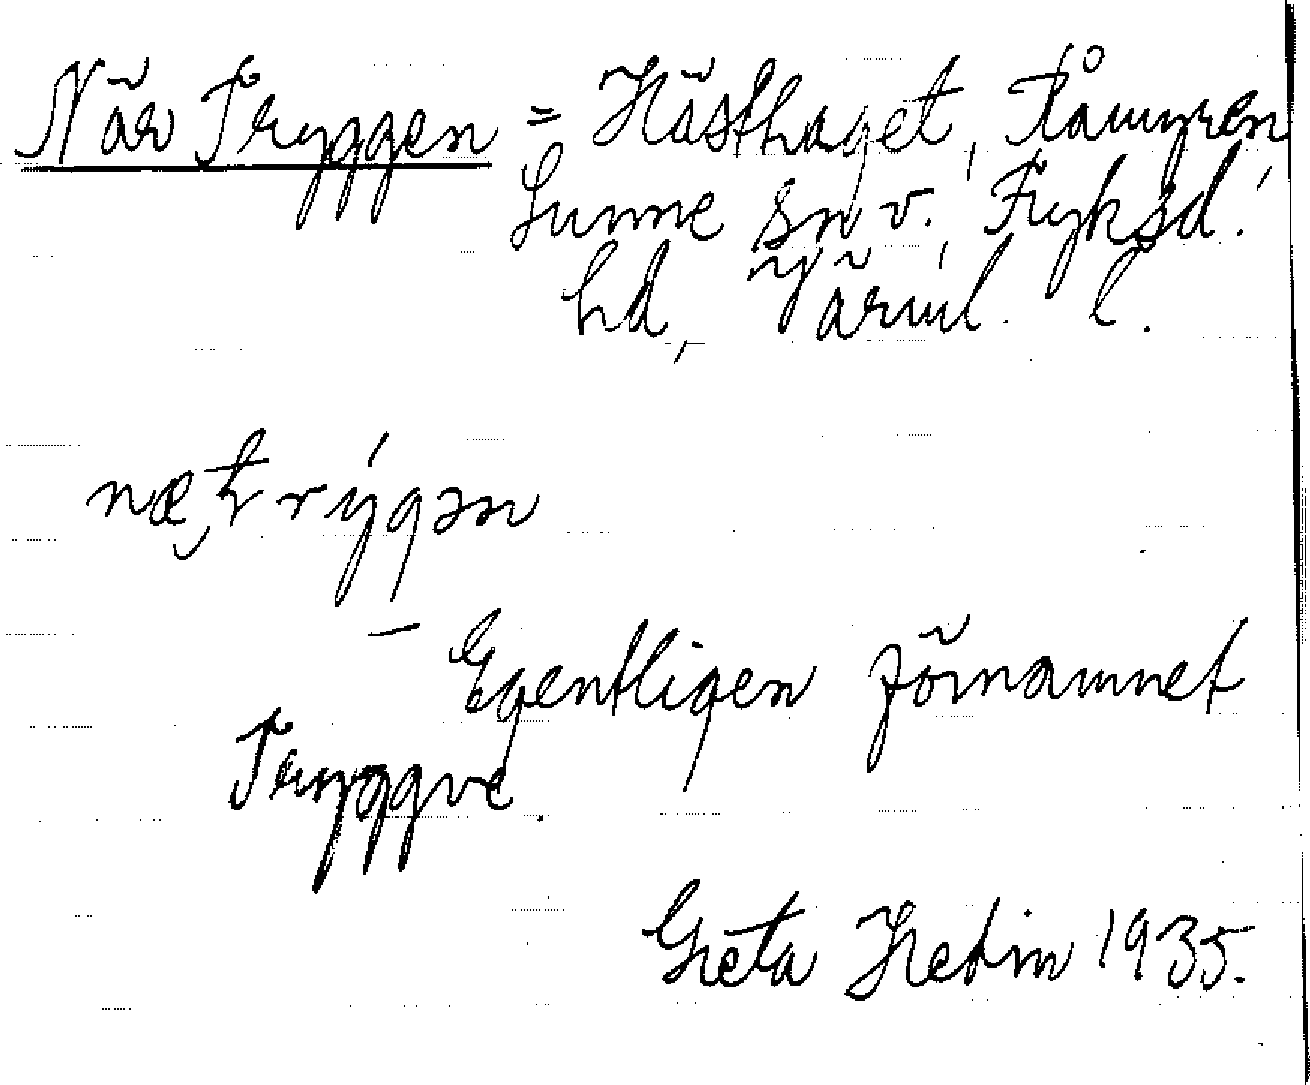 När Tryggen = Hästhaget, Råmyren,
Sunne sn v. Fryksd.
hd, Värml. l.
næ, trýgən
– Egentligen förnamnet
Tryggve.
Greta Hedin 1935.